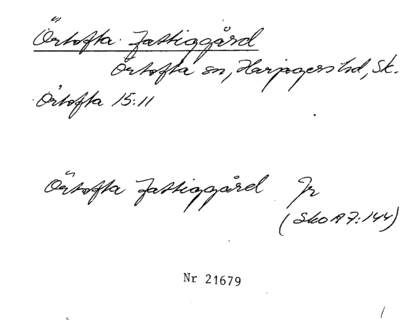 Örtofta fattiggård
Örtofta sn, Harjagers hd, Sk.
Örtofta 15:11
Örtofta fattiggård Jr
(SkoA7:144)
Nr 21679